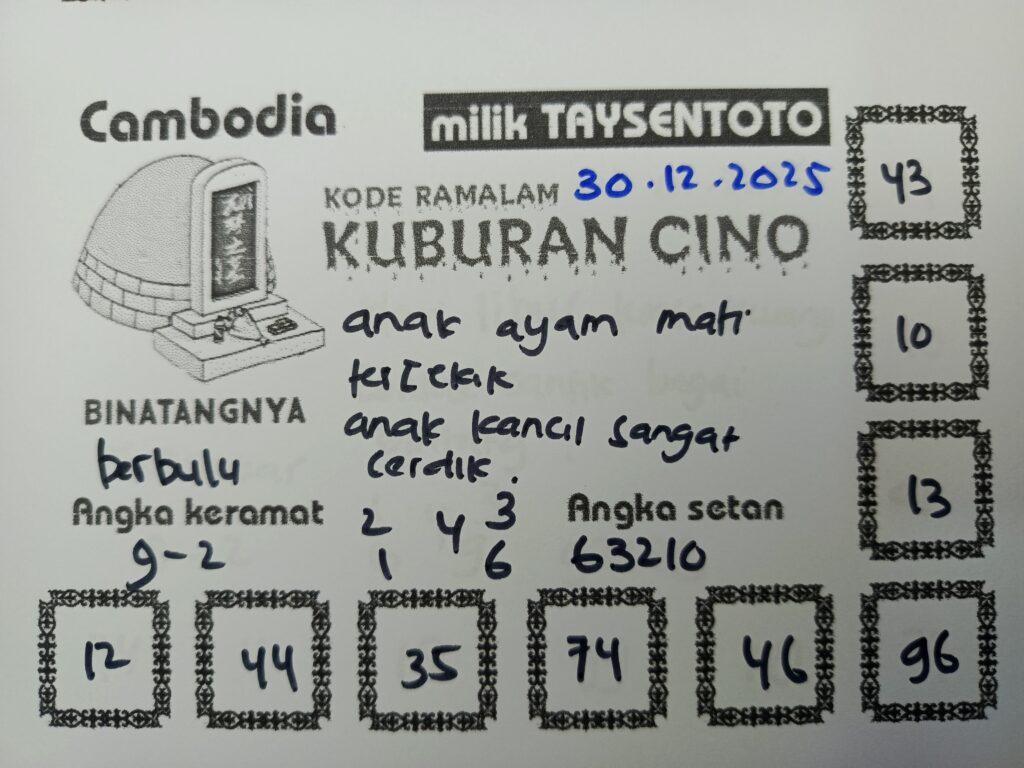 Cambodia
milik TAYSENTOTO
KODE RAMALAM 30.12.2025
KUBURAN CINO
anak ayam mati
tercekik
anak kancil sangat
cerdik.
BINATANGNYA
berbulu
Angka keramat
9-2
2 4 3
1 6
Angka setan
63210
43
10
13
12 44 35 74 46 96